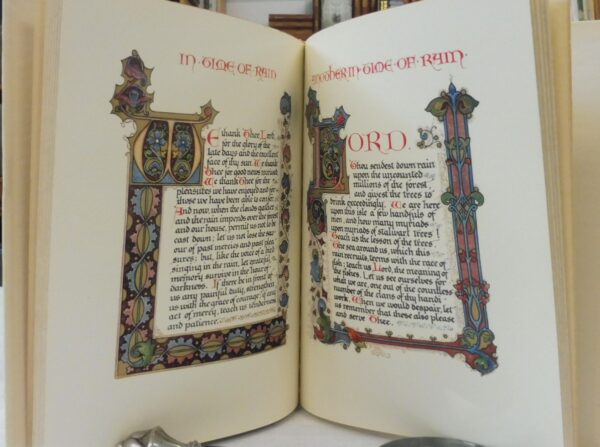 IN · TIME · OF · RAIN
We thank Thee, Lord,
for the glory of the
late days and the excellent
face of thy sun. We thank
Thee for good news received.
We thank Thee for the
pleasures we have enjoyed and for
those we have been able to confer.
And now, when the clouds gather
and the rain impends over the forest
and our house, permit us not to be
cast down; let us not lose the sav-
our of past mercies and past plea-
sures; but, like the voice of a bird
singing in the rain, let grateful
memory survive in the hour of
darkness. If there be in front of
us any painful duty, strengthen
us with the grace of courage; if any
act of mercy, teach us tenderness
and patience.
ANOTHER · IN · TIME · OF · RAIN ·
LORD,
Thou sendest down rain
upon the uncounted
millions of the forest,
and givest the trees to
drink exceedingly. We are here
upon this isle a few handfuls of
men, and how many myriads
upon myriads of stalwart trees!
Teach us the lesson of the trees.
The sea around us, which this
rain recruits, teems with the race of
fish; teach us, Lord, the meaning of
the fishes. Let us see ourselves for
what we are, one out of the countless
number of the clans of thy handi-
work. When we would despair, let
us remember that these also please
and serve Thee.